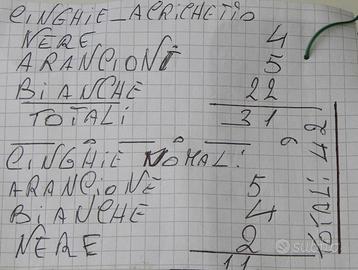 CINGHIE_ACRICHETTO
NERE 4
ARANCIONI 5
BIANCHE 22
TOTALI 31
CINGHIE NOMALI:
ARANCIONE 5
BIANCHE 4
NERE 2
11
TOTALI 42
subito